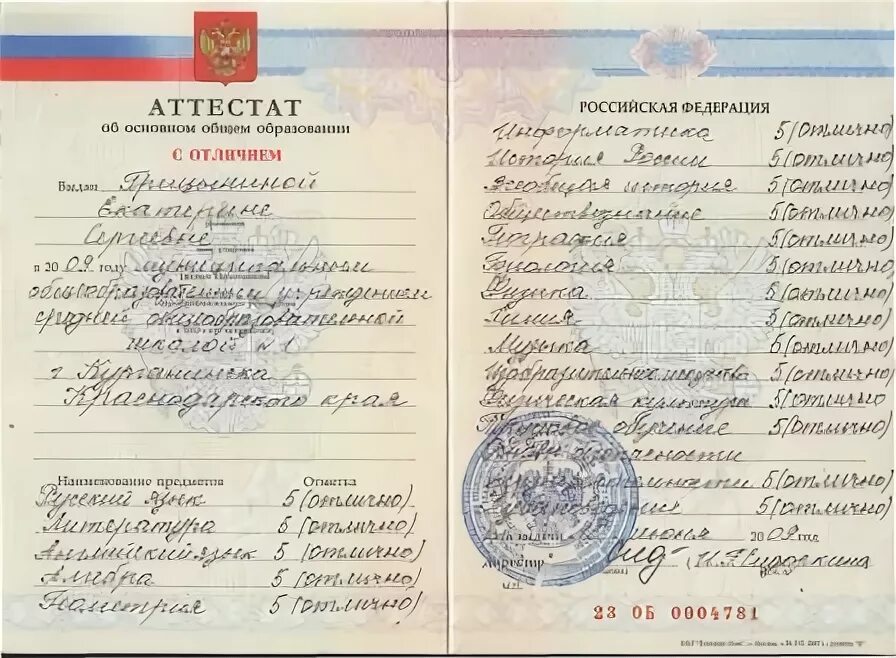 АТТЕСТАТ
об основном общем образовании
С ОТЛИЧИЕМ
Выдан
Екатерине
Сергеевне
в 2009 году муниципальным
общеобразовательным учреждением
средней общеобразовательной
школой №1
г Курганинска
Краснодарского края
Наименование предметов Отметка
Русский язык 5 (отлично)
Литература 5 (отлично)
Английский язык 5 (отлично)
Алгебра 5 (отлично)
Геометрия 5 (отлично)
РОССИЙСКАЯ ФЕДЕРАЦИЯ
Информатика 5 (отлично)
История России 5 (отлично)
Всеобщая история 5 (отлично)
Обществознание 5 (отлично)
География 5 (отлично)
Биология 5 (отлично)
Физика 5 (отлично)
Химия 5 (отлично)
Музыка 5 (отлично)
Изобразительное искусство 5 (отлично)
Физическая культура 5 (отлично
Трудовое обучение 5 (отлично)
безопасности
5 (отлично)
5 (отлично)
июня 2009 года
23 ОБ 0004781